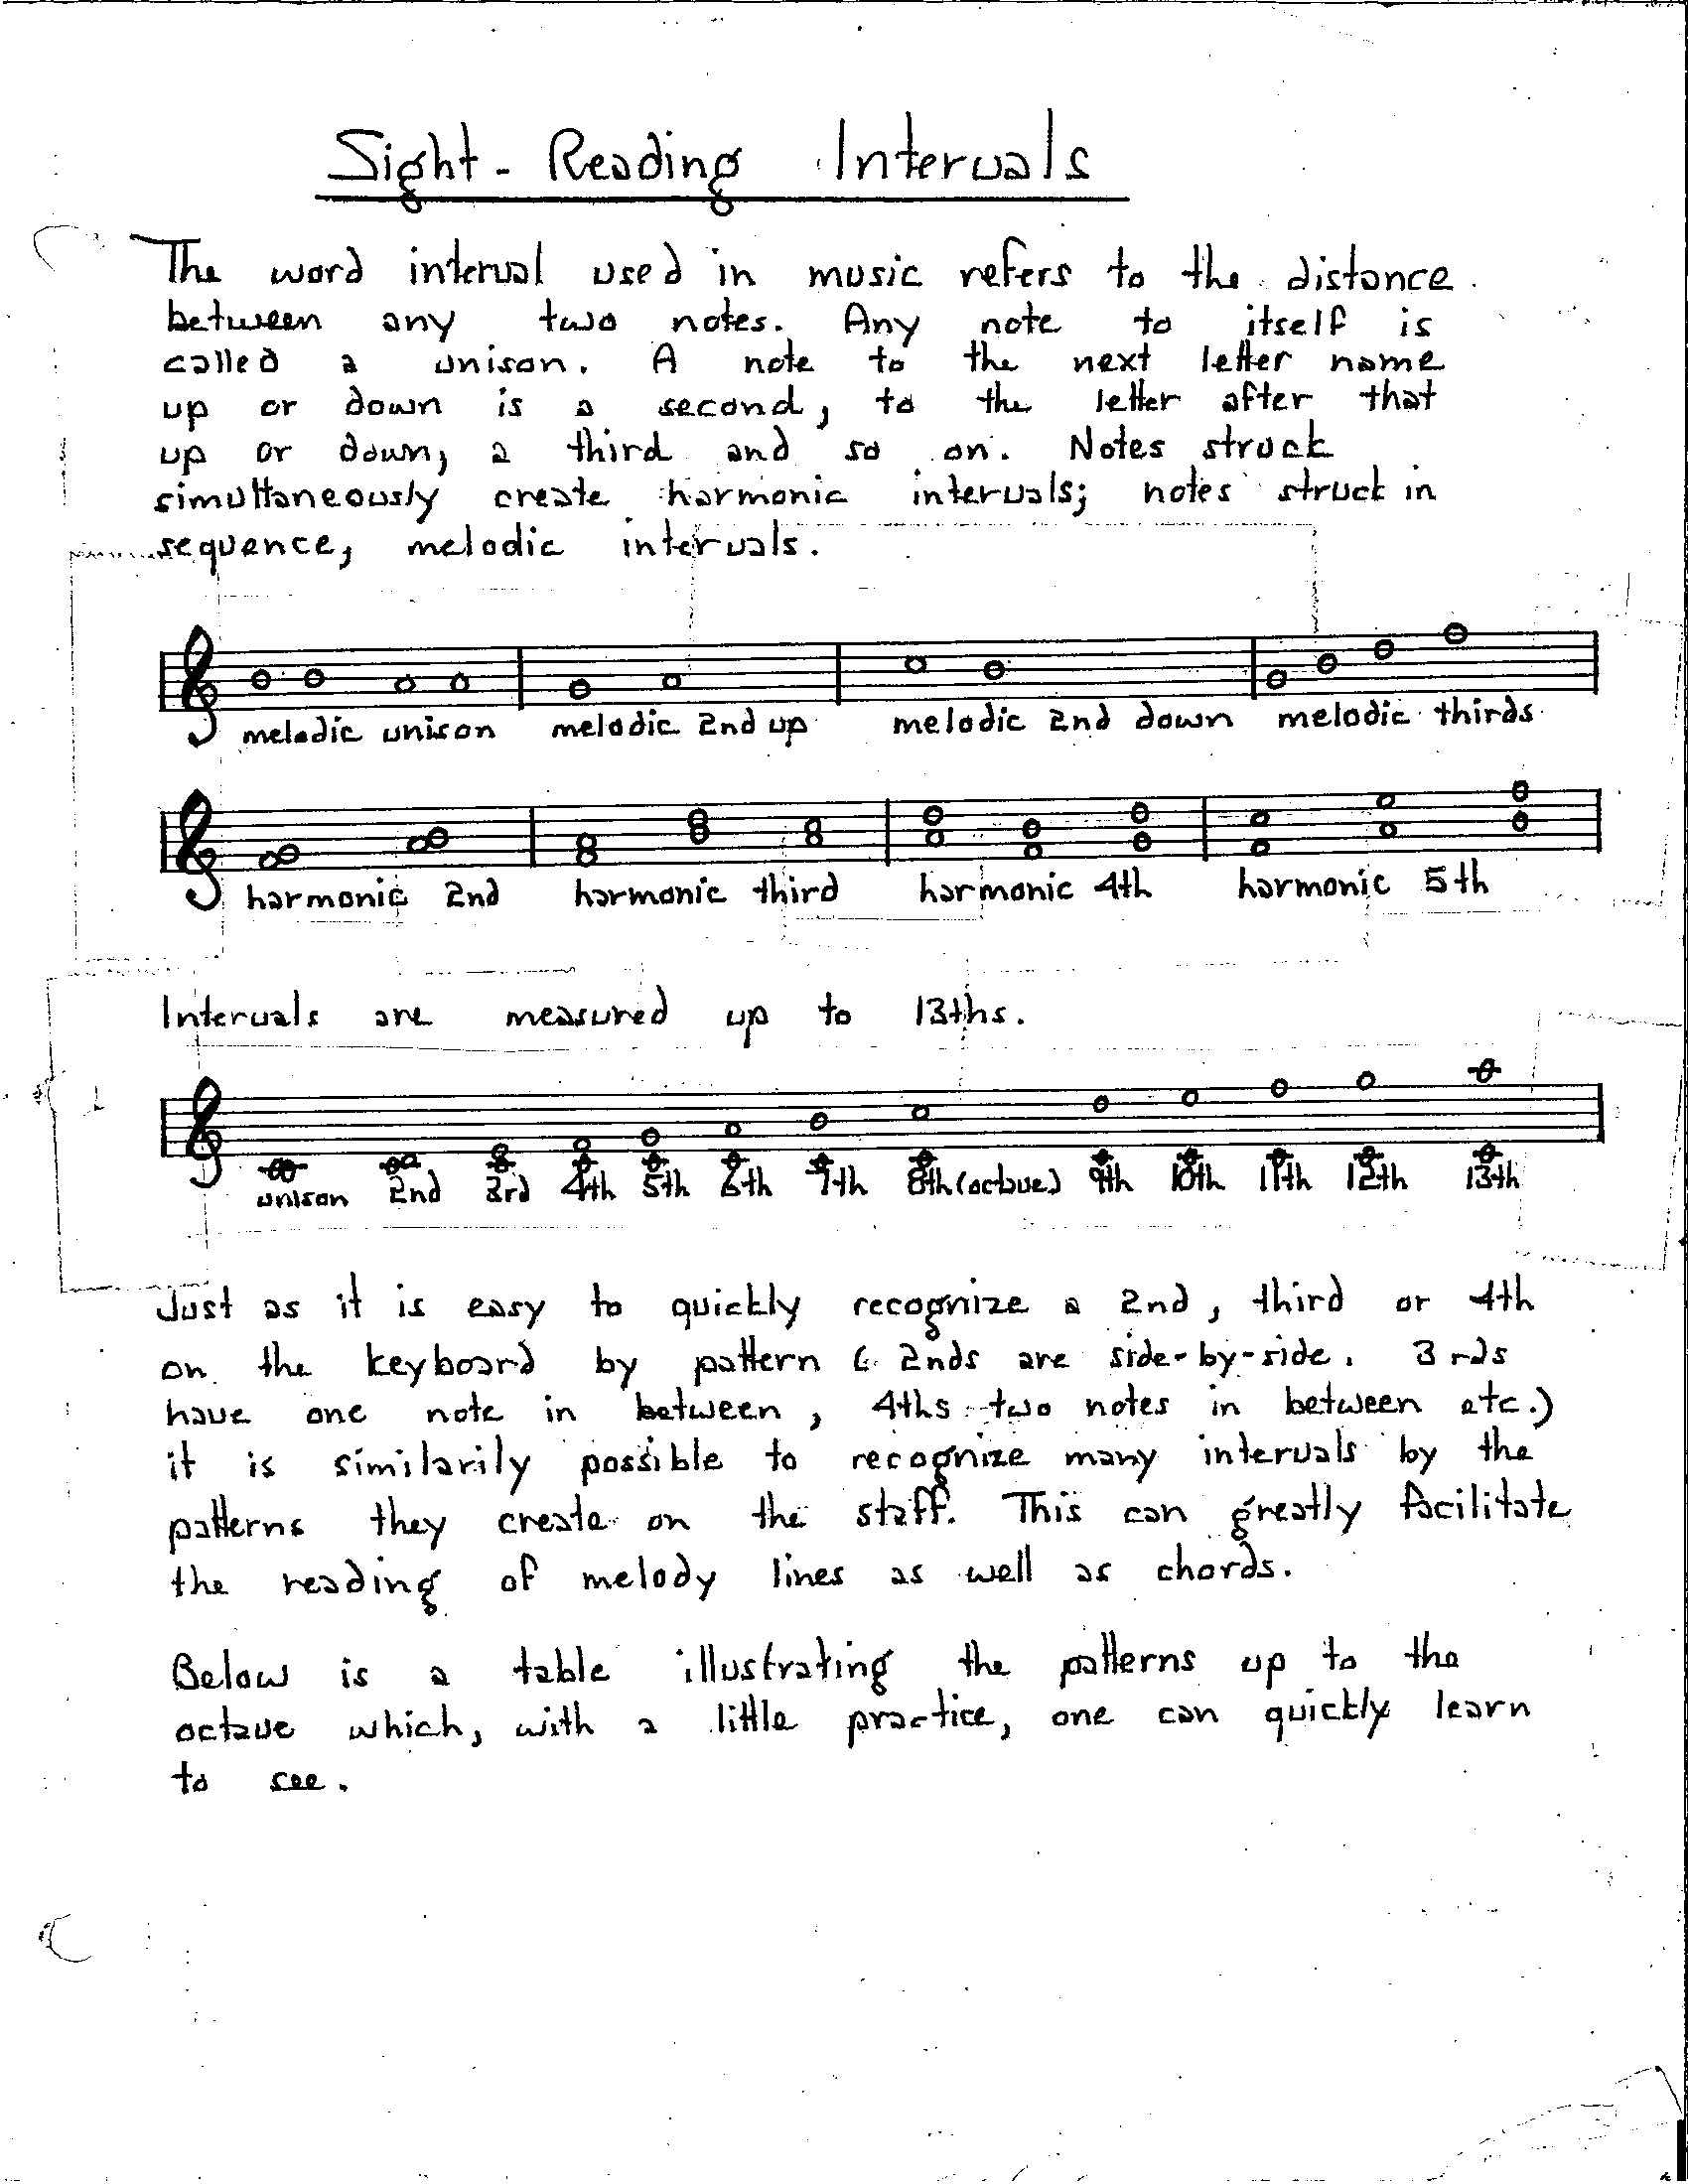 Sight-Reading Intervals
The word interval used in music refers to the distance
between any two notes. Any note to itself is
called a unison. A note to the next letter name
up or down is a second, to the letter after that
up or down, a third and so on. Notes struck
simultaneously create harmonic intervals; notes struck in
sequence, melodic intervals.
melodic unison melodic 2nd up melodic 2nd down melodic thirds
harmonic 2nd harmonic third harmonic 4th harmonic 5th
Intervals are measured up to 13ths.
unison 2nd 3rd 4th 5th 6th 7th 8th (octave) 9th 10th 11th 12th 13th
Just as it is easy to quickly recognize a 2nd, third or 4th
on the keyboard by pattern ( 2nds are side-by-side. 3rds
have one note in between, 4ths two notes in between etc.)
it is similarily possible to recognize many intervals by the
patterns they create on the staff. This can greatly facilitate
the reading of melody lines as well as chords.
Below is a table illustrating the patterns up to the
octave which, with a little practice, one can quickly learn
to see.